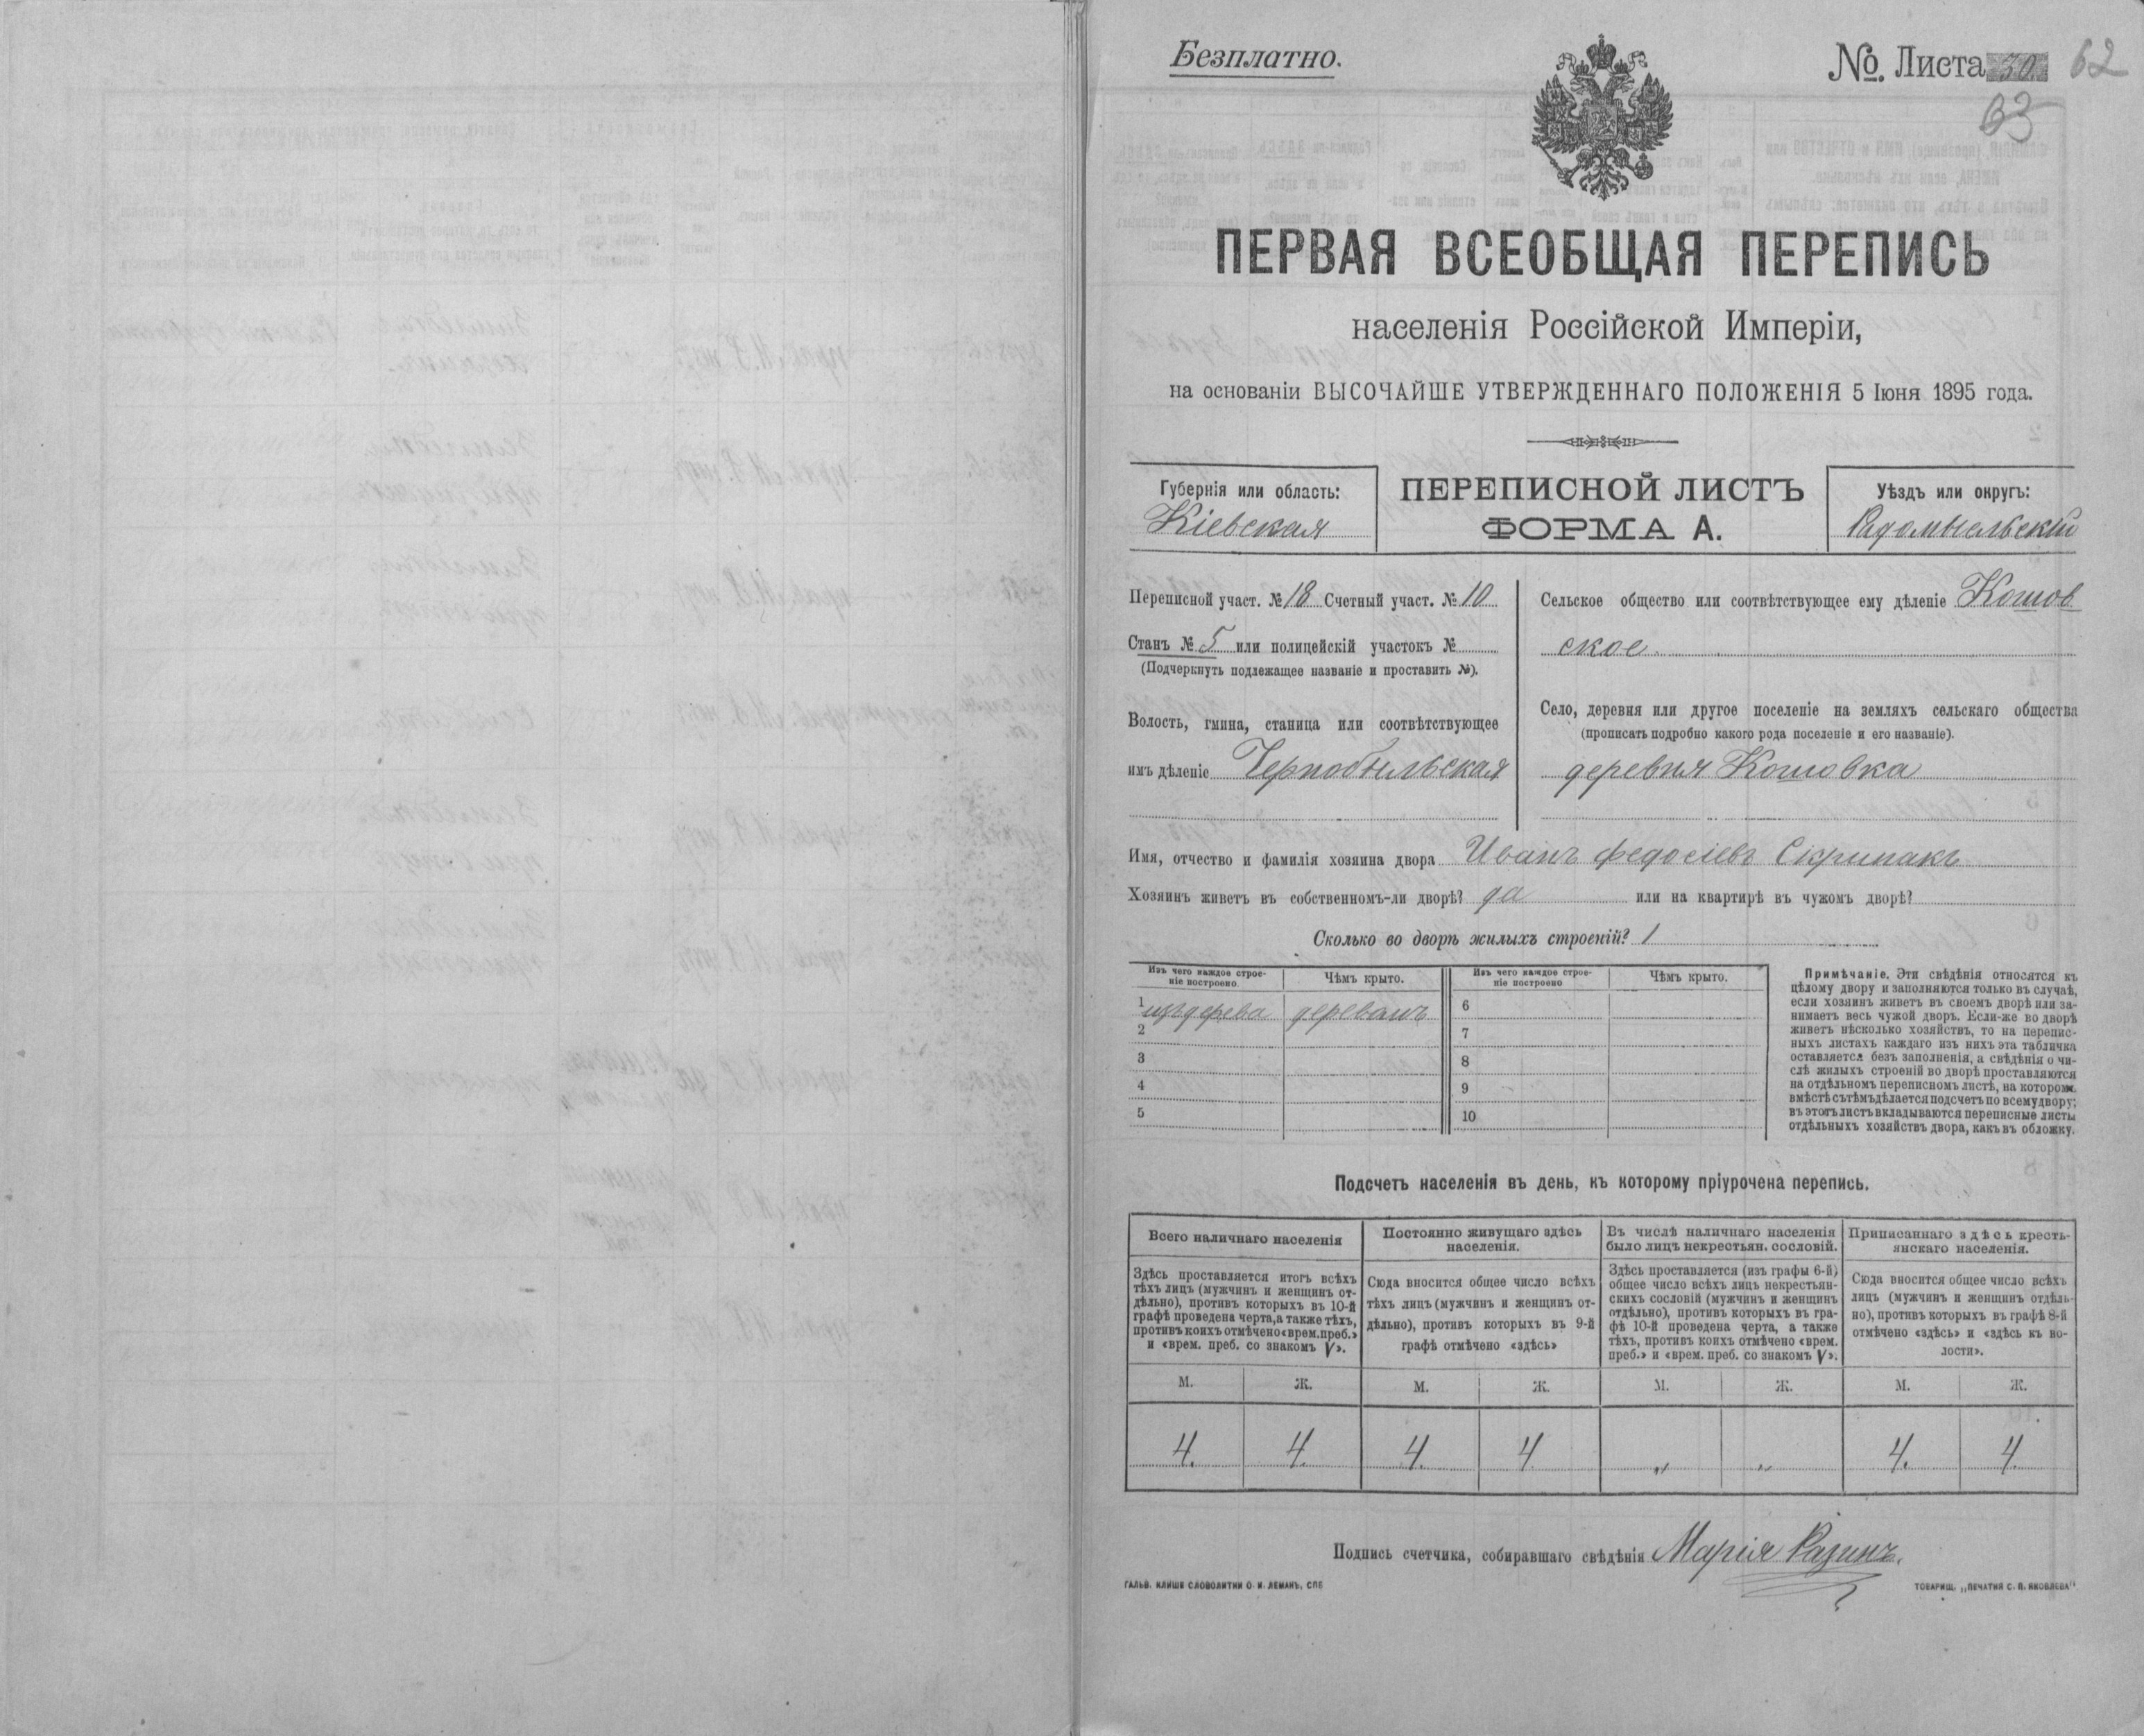 Безплатно.
№ Листа 30 62
63
ПЕРВАЯ ВСЕОБЩАЯ ПЕРЕПИСЬ
населенія Россійской Имперіи,
на основаніи ВЫСОЧАЙШЕ УТВЕРЖДЕННАГО ПОЛОЖЕНІЯ 5 Іюня 1895 года.
Губернія или область:
Кіевская
ПЕРЕПИСНОЙ ЛИСТЪ
ФОРМА А.
Уѣздъ или округъ:
Радомысльскій
Переписной участ. № 18 Счетный участ. № 10
Станъ № 5 или полицейскій участокъ №
(Подчеркнуть подлежащее названіе и проставить №).
Волость, гмина, станица или соотвѣтствующее
имъ дѣленіе Чернобыльская
Сельское общество или соотвѣтствующее ему дѣленіе Кошов
ское
Село, деревня или другое поселеніе на земляхъ сельскаго общества
(прописать подробно какого рода поселеніе и его названіе).
деревня Кошовка
Имя, отчество и фамилія хозяина двора Иванъ Федосіевъ Скрипакъ
Хозяинъ живетъ въ собственномъ-ли дворѣ? да или на квартирѣ въ чужомъ дворѣ?
Сколько во дворѣ жилыхъ строеній? 1
Изъ чего каждое строе-
ніе построено.
Чѣмъ крыто.
Изъ чего каждое строе-
ніе построено
Чѣмъ крыто.
1 изъ дерева деревомъ 6
2 7
3 8
4 9
5 10
Примѣчаніе. Эти свѣдѣнія относятся къ
цѣлому двору и заполняются только въ случаѣ,
если хозяинъ живетъ въ своемъ дворѣ или за-
нимаетъ весь чужой дворъ. Если-же во дворѣ
живетъ нѣсколько хозяйствъ, то на перепис-
ныхъ листахъ каждаго изъ нихъ эта табличка
оставляется безъ заполненія, а свѣдѣнія о чи-
слѣ жилыхъ строеній во дворѣ проставляются
на отдѣльномъ переписномъ листѣ, на которомъ
вмѣстѣ съ тѣмъ дѣлается подсчетъ по всему двору;
въ этотъ листъ вкладываются переписные листы
отдѣльныхъ хозяйствъ двора, какъ въ обложку.
Подсчетъ населенія въ день, къ которому пріурочена перепись.
Всего наличнаго населенія
Здѣсь проставляется итогъ всѣхъ
тѣхъ лицъ (мужчинъ и женщинъ от-
дѣльно), противъ которыхъ въ 10-й
графѣ проведена черта, а также тѣхъ,
противъ коихъ отмѣчено «врем. преб.»
и «врем. преб. со знакомъ V».
Постоянно живущаго здѣсь
населенія.
Сюда вносится общее число всѣхъ
тѣхъ лицъ (мужчинъ и женщинъ от-
дѣльно), противъ которыхъ въ 9-й
графѣ отмѣчено «здѣсь»
Въ числѣ наличнаго населенія
было лицъ некрестьян. сословій.
Здѣсь проставляется (изъ графы 6-й)
общее число всѣхъ лицъ некрестьян-
скихъ сословій (мужчинъ и женщинъ
отдѣльно), противъ которыхъ въ гра-
фѣ 10-й проведена черта, а также
тѣхъ, противъ коихъ отмѣчено «врем.
преб.» и «врем. преб. со знакомъ V».
Приписаннаго здѣсь кресть-
янскаго населенія.
Сюда вносится общее число всѣхъ
лицъ (мужчинъ и женщинъ отдѣль-
но), противъ которыхъ въ графѣ 8-й
отмѣчено «здѣсь» и «здѣсь въ во-
лости».
М. Ж. М. Ж. М. Ж. М. Ж.
4. 4. 4. 4 „ „ 4. 4.
Подпись счетчика, собиравшаго свѣдѣнія Марія Разинъ.
ГАЛЬВ. КЛИШЕ СЛОВОЛИТНИ О. И. ЛЕМАНЪ, СПБ
ТОВАРИЩ. „ПЕЧАТНЯ С. П. ЯКОВЛЕВА"